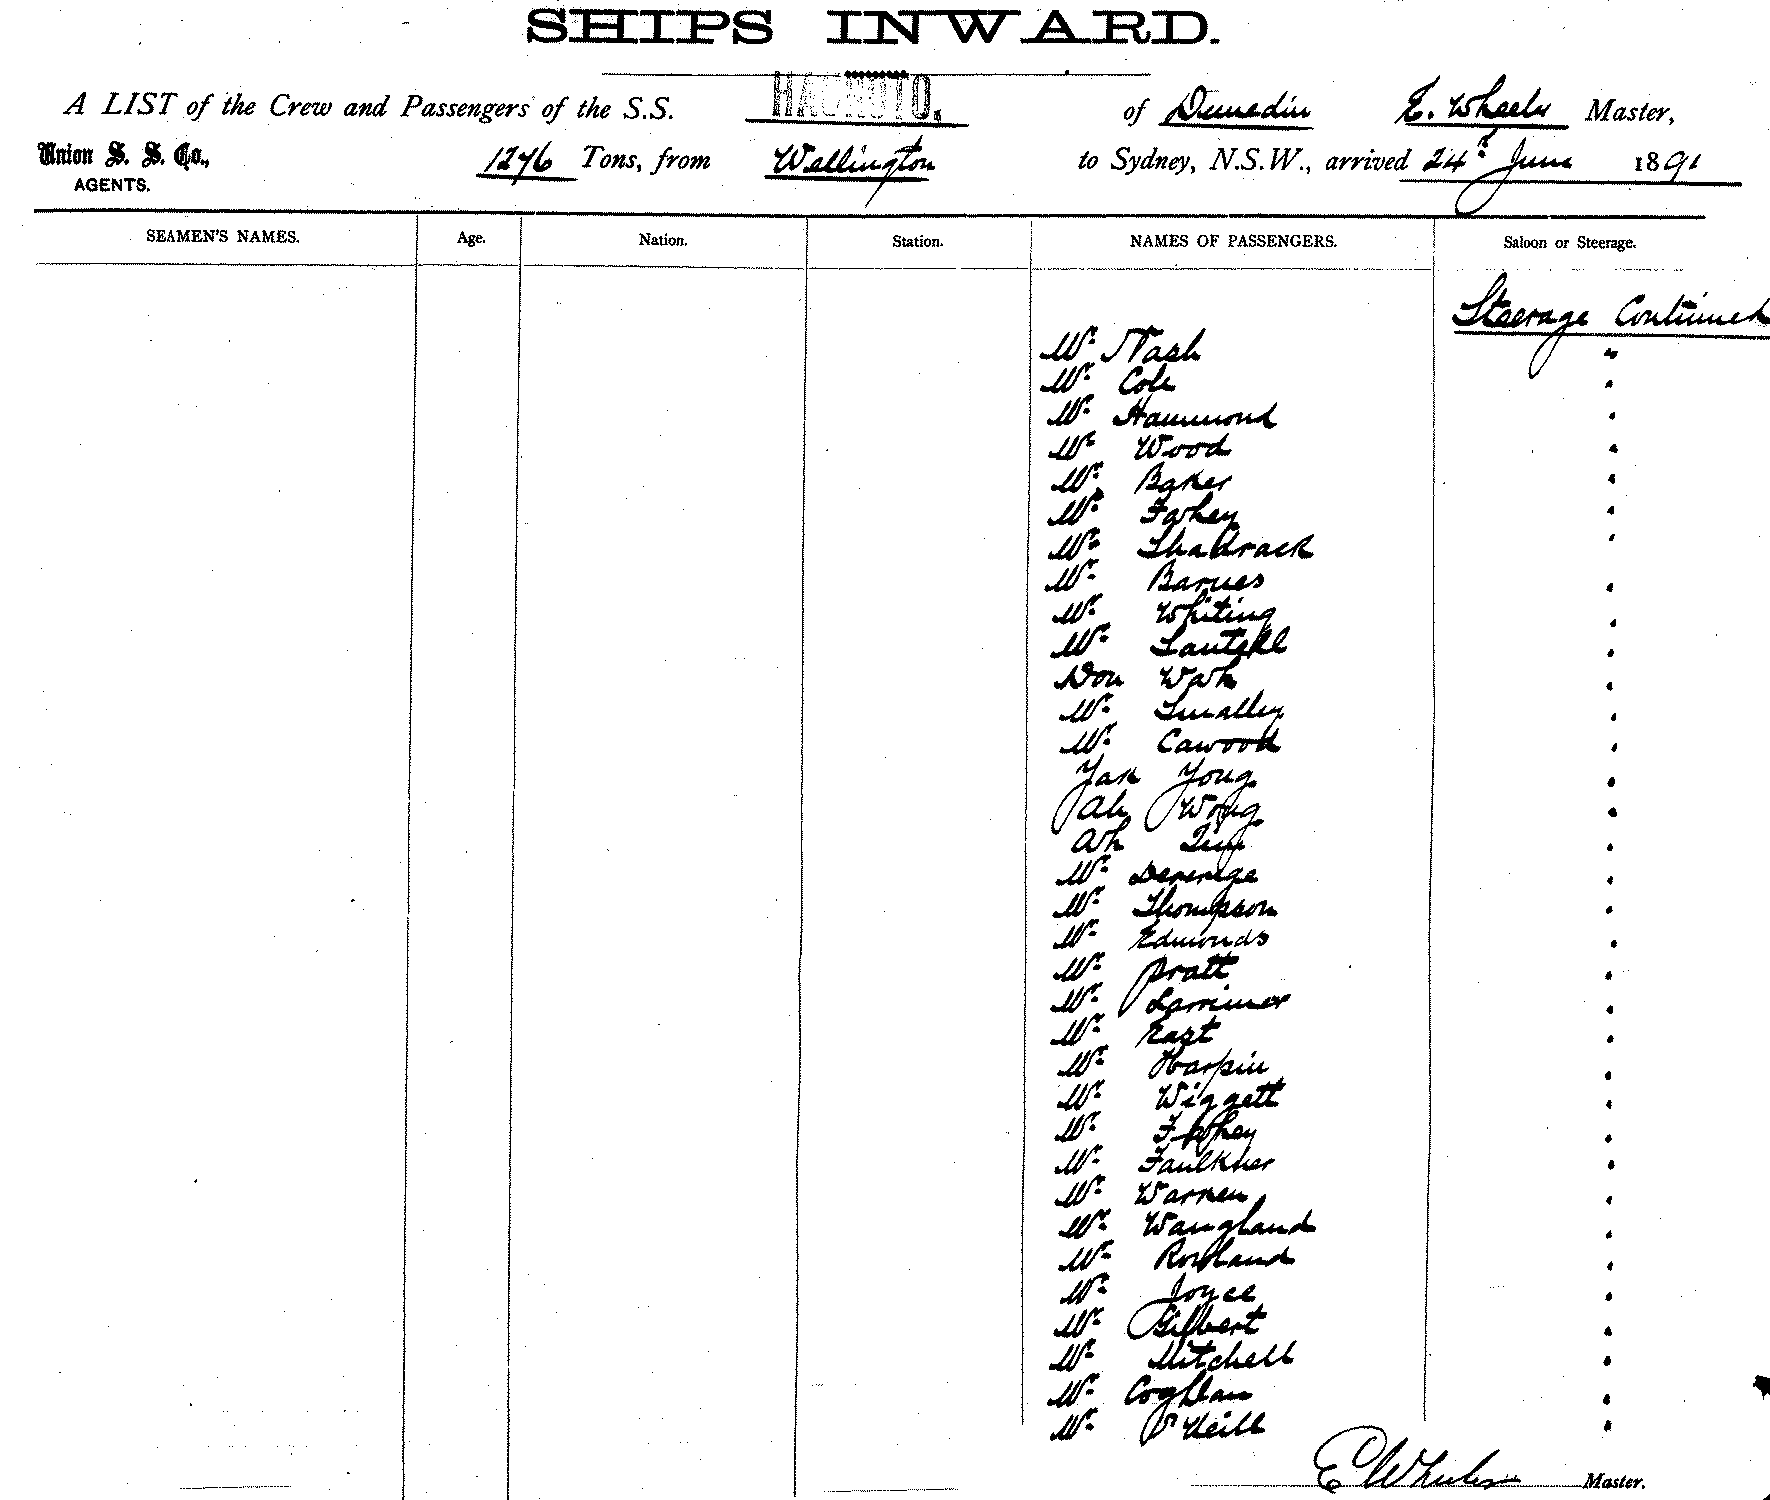 SHIPS INWARD.
A LIST of the Crew and Passengers of the S.S. HAUROTO. of Dunedin E. Wheeler Master,
Union S. S. Co., 1276 Tons, from Wellington to Sydney, N.S.W., arrived 24th June 1891
AGENTS.
SEAMEN'S NAMES. Age. Nation. Station. NAMES OF PASSENGERS. Saloon or Steerage.
Steerage Continued
Mr. Nash "
Mr. Cole "
Mr. Hammond "
Mr. Wood "
Mr. Baker "
Mr. Fahey "
Mr. Shadrack "
Mr. Barnes "
Mr. Whiting "
Mr. "
Don Wah "
Mr. Smalley "
Mr. Cawood "
Yan Youg "
Ah Wong "
Ah "
Mr. "
Mr. Thompson "
Mr. Edmonds "
Mr. Pratt "
Mr. Lorrimer "
Mr. East "
Mr. Harpin "
Mr. Wiggett "
Mr. Fahey "
Mr. Faulkner "
Mr. Warren "
Mr. Waugland "
Mr. Rowland "
Mr. Joyce "
Mr. Gilbert "
Mr. Mitchell "
Mr. Coghlan "
Mr. O'Neill "
E Wheeler Master.